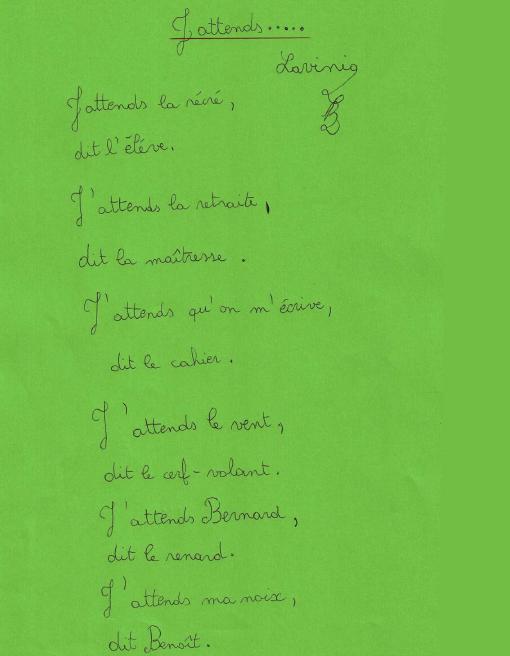 J'attends.....
Lavinia
B
J'attends la récré,
dit l'élève.
J'attends la retraite,
dit la maîtresse.
J'attends qu'on m'écrive,
dit le cahier.
J'attends le vent,
dit le cerf-volant.
J'attends Bernard,
dit le renard.
J'attends ma noix,
dit Benoît.